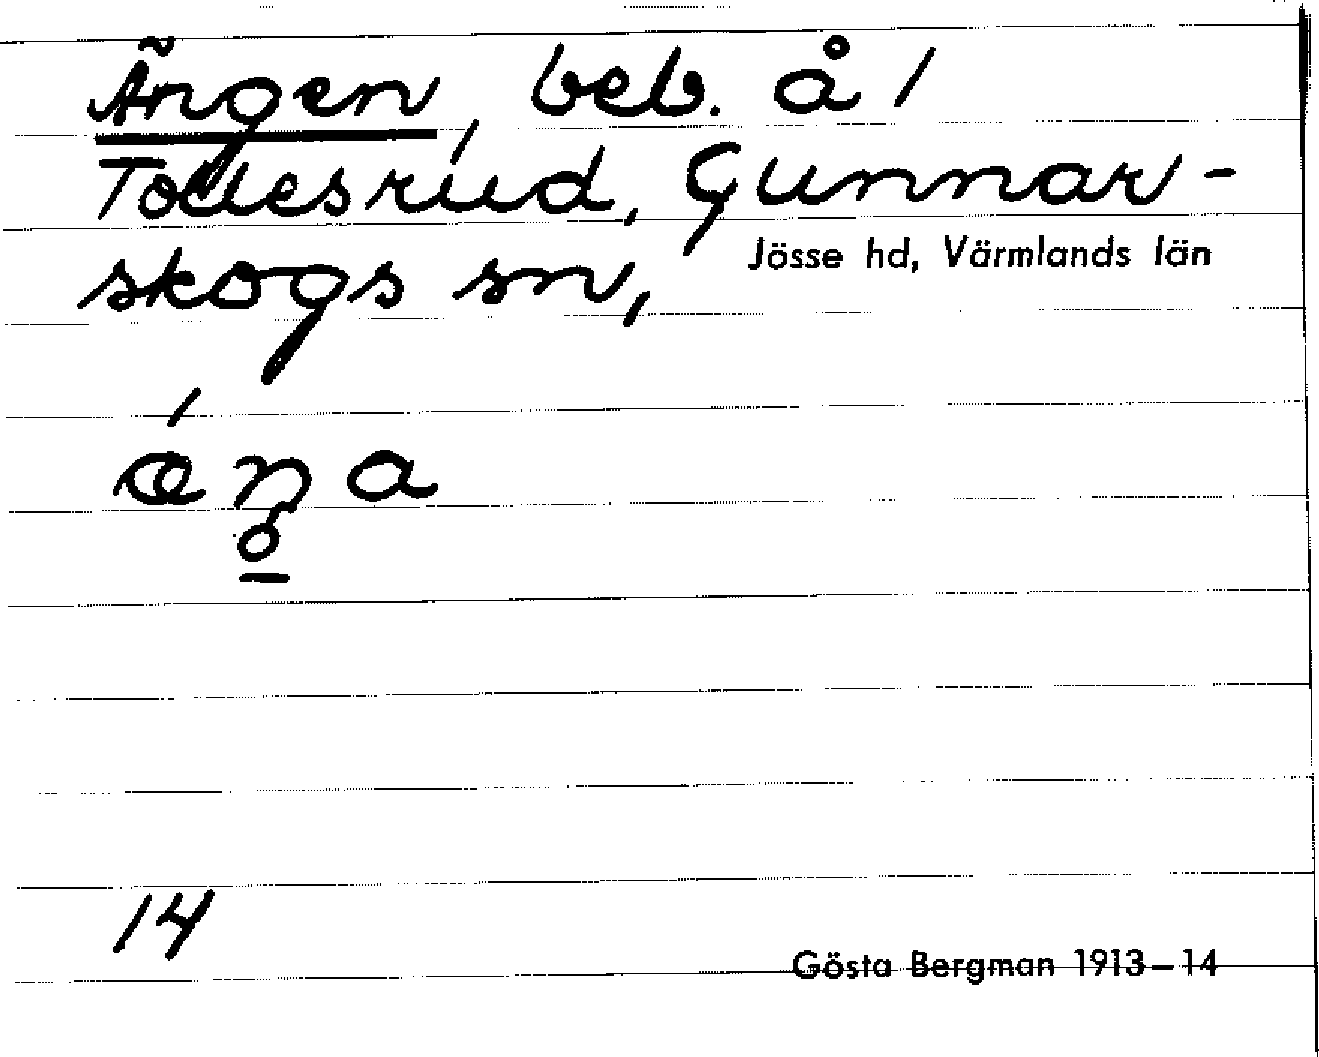 Ängen, beb. å 1
Tollesrud, Gunnar-
skogs sn, Jösse hd, Värmlands län
14
Gösta Bergman 1913–14